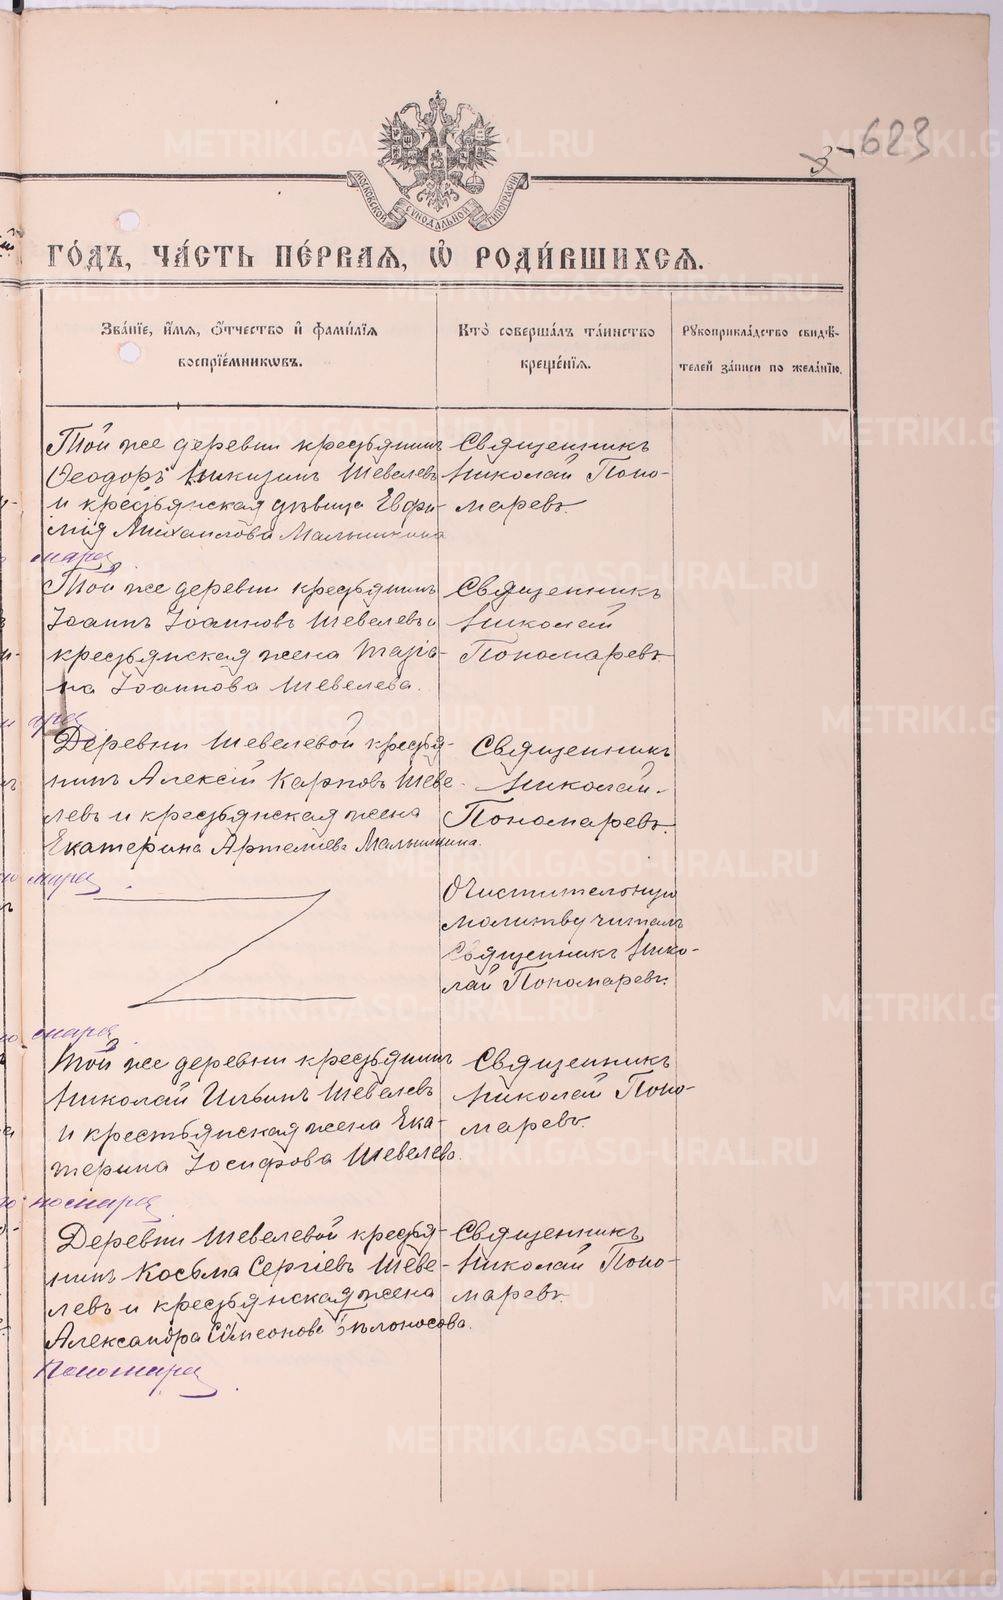 623
МОСКОВСКОЙ СѴНОДАЛЬНОЙ ТИПОГРАФІИ
ГО́ДЪ, ЧА́СТЬ ПЕ́РВАЯ, Ѽ РОДИ́ВШИХСЯ.
Зва́нїе, и҆́мя, ѻ҆́тчество и҆ фами́лїя
воспрїе́мникѡвъ.
Кто̀ соверша́лъ та́инство
креще́нїя.
Рꙋкоприкла́дство свидѣ́-
телей за́писи по жела́нїю.
Той же деревни крестьянинъ
Ѳеодоръ Шевелевъ
и крестьянская дѣвица Евфи-
мія Михаилова Малышкина
Священникъ
Николай Поно-
маревъ.
Той же деревни крестьянинъ
Іоаннъ Іоанновъ Шевелевъ и
крестьянская жена Марiа-
на Іоаннова Шевелева.
Священникъ
Николай
Пономаревъ
Деревни Шевелевой крестья-
нинъ Алексій Карповъ Шеве-
левъ и крестьянская жена
Екатерина Артемиева Малышкина.
Священникъ
Николай
Пономаревъ.
Очистительную
молитву читалъ
Священникъ Нико-
лай Пономаревъ.
Той же деревни крестьянинъ
Николай Ильинъ Шевелевъ
и крестьянская жена Ека-
терина Іосифова Шевелева.
Священникъ
Николай Поно-
маревъ.
Деревни Шевелевой крестья-
нинъ Косьма Сергіевъ Шеве-
левъ и крестьянская жена
Александра Сѵмеонова Бѣлоносова.
Священникъ
Николай Поно-
маревъ.
METRIKI.GASO-URAL.RU